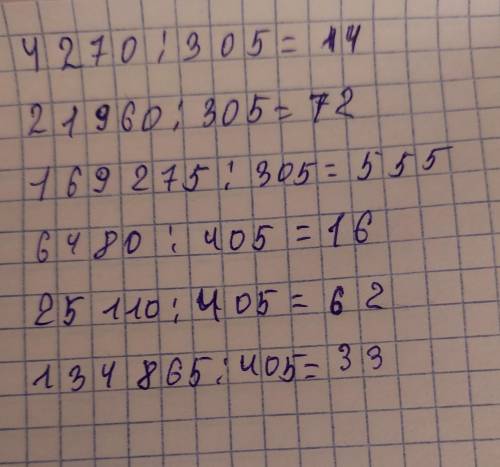 4270:305=14
21960:305=72
169275:305=555
6480:405=16
25110:405=62
134865:405=33